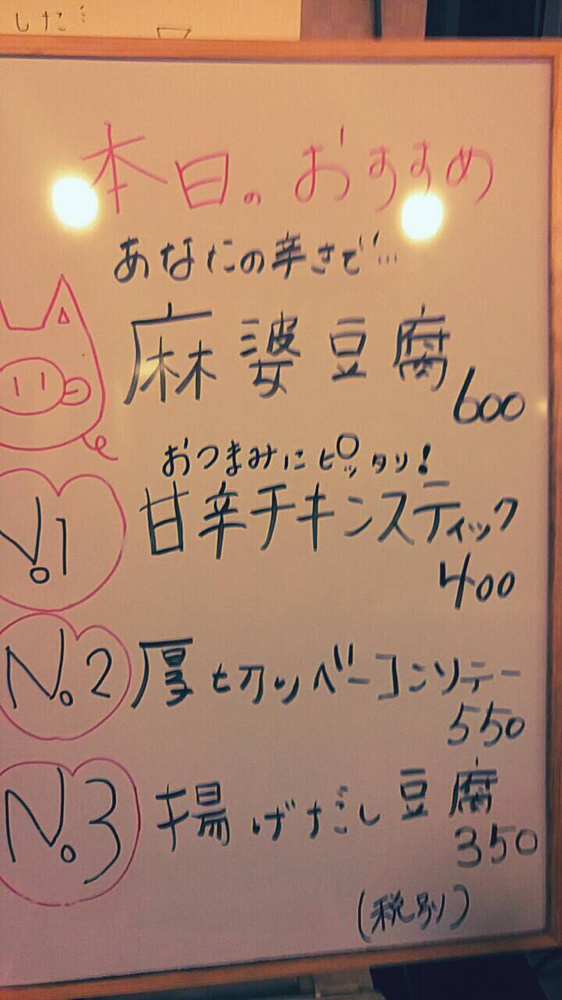 本日のおすすめ
あなたの辛さで…
麻婆豆腐
600
おつまみにピッタリ!
No.1 甘辛チキンスティック
400
No.2 厚切りベーコンソテー
550
No.3 揚げだし豆腐
350
(税別)